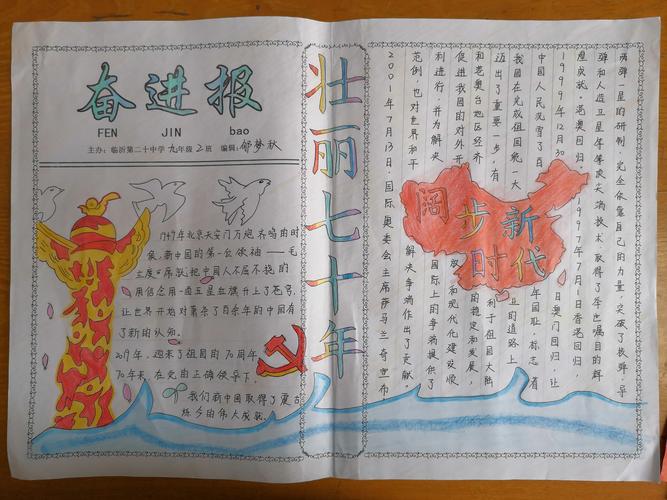 奋进报
FEN JIN bao
主办：临沂第二十中学九年级2班 编辑：梦秋
1949年北京天安门万炮齐鸣的时
候，新中国的第一位领袖——毛
主席把中国人不屈不挠的
用信念用一面五星红旗升上了苍穹，
让世界开始对了百余年的中国有
了新的认知。
2019年，迎来了祖国的70周年
70年来，在党的正确领导下，
我们新中国取得了震古
烁今的伟大成就。
壮丽七十年
阔步新
时代
两弹一星的研制，完全依靠自己的力量，突破了核弹、导
弹和人造卫星等尖端技术，取得了举世瞩目的辉
煌成就。港澳回归，1997年7月1日香港回归，
1999年12月30日澳门回归，让
中国人民洗雪了百年国耻，标志着
我国在完成祖国统一大业的道路上
迈出了重要一步，有利于祖国大陆
和港澳台地区经济的稳定和发展，
促进我国的对外开放和现代化建设顺
利进行，并为解决国际上的争端提供了
范例，也对世界和平解决争端作出了贡献。
2001年7月13日，国际奥委会主席萨马兰奇宣布